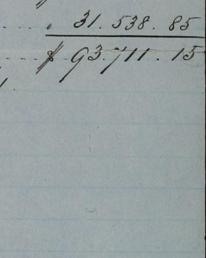 31.538.85
$ 93.711.15